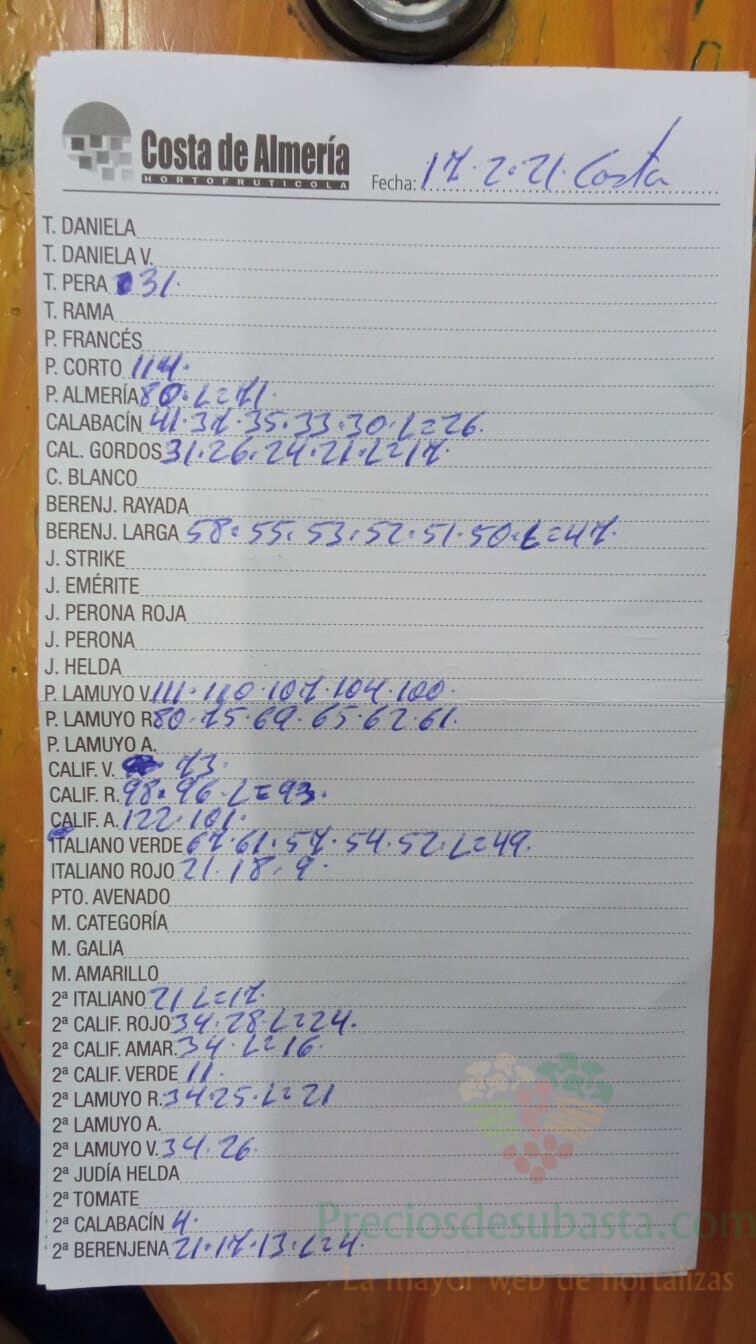 Costa de Almería
HORTOFRUTICOLA
Fecha: 17.2.21. Costa
T. DANIELA
T. DANIELA V.
T. PERA 31.
T. RAMA
P. FRANCÉS
P. CORTO 114.
P. ALMERÍA 80. L=71.
CALABACÍN 41.37.35.33.30.L=26.
CAL. GORDOS 31.26.24.21.L=17.
C. BLANCO
BERENJ. RAYADA
BERENJ. LARGA 58.55.53.52.51.50.L=47.
J. STRIKE
J. EMÉRITE
J. PERONA ROJA
J. PERONA
J. HELDA
P. LAMUYO V. 111.110.107.104.100.
P. LAMUYO R 80.75.69.65.62.61.
P. LAMUYO A.
CALIF. V. 73.
CALIF. R. 98.96.L=93.
CALIF. A. 122.101.
ITALIANO VERDE 67.61.57.54.52.L=49.
ITALIANO ROJO 21.18.9.
PTO. AVENADO
M. CATEGORÍA
M. GALIA
M. AMARILLO
2ª ITALIANO 21 L=17.
2ª CALIF. ROJO 34.28.L=24.
2ª CALIF. AMAR. 34.L=16.
2ª CALIF. VERDE 11.
2ª LAMUYO R. 34.25.L=21
2ª LAMUYO A.
2ª LAMUYO V. 34.26.
2ª JUDÍA HELDA
2ª TOMATE
2ª CALABACÍN 4.
2ª BERENJENA 21.17.13.L=4.
Preciosdesubasta.com
La mayor web de hortalizas